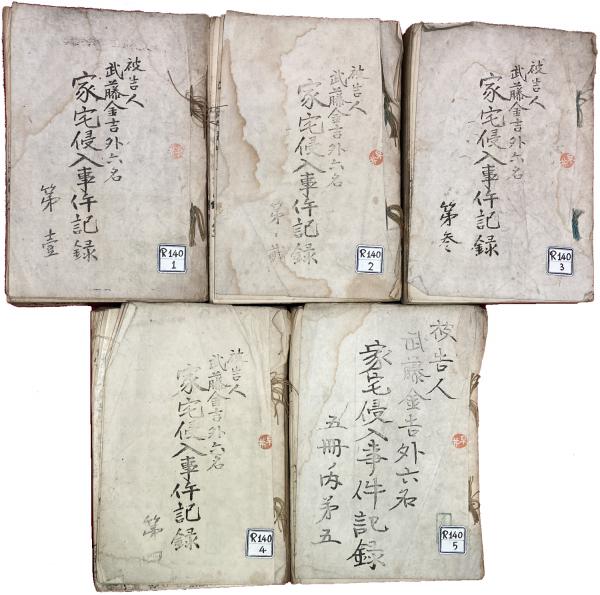 被告人
武藤金吉外六名
家宅侵入事件記録
第壹
R140
1
被告人
武藤金吉外六名
家宅侵入事件記録
第貳
R140
2
被告人
武藤金吉外六名
家宅侵入事件記録
第参
R140
3
被告人
武藤金吉外六名
家宅侵入事件記録
第四
R140
4
被告人
武藤金吉外六名
家宅侵入事件記録
五冊ノ内第五
R140
5